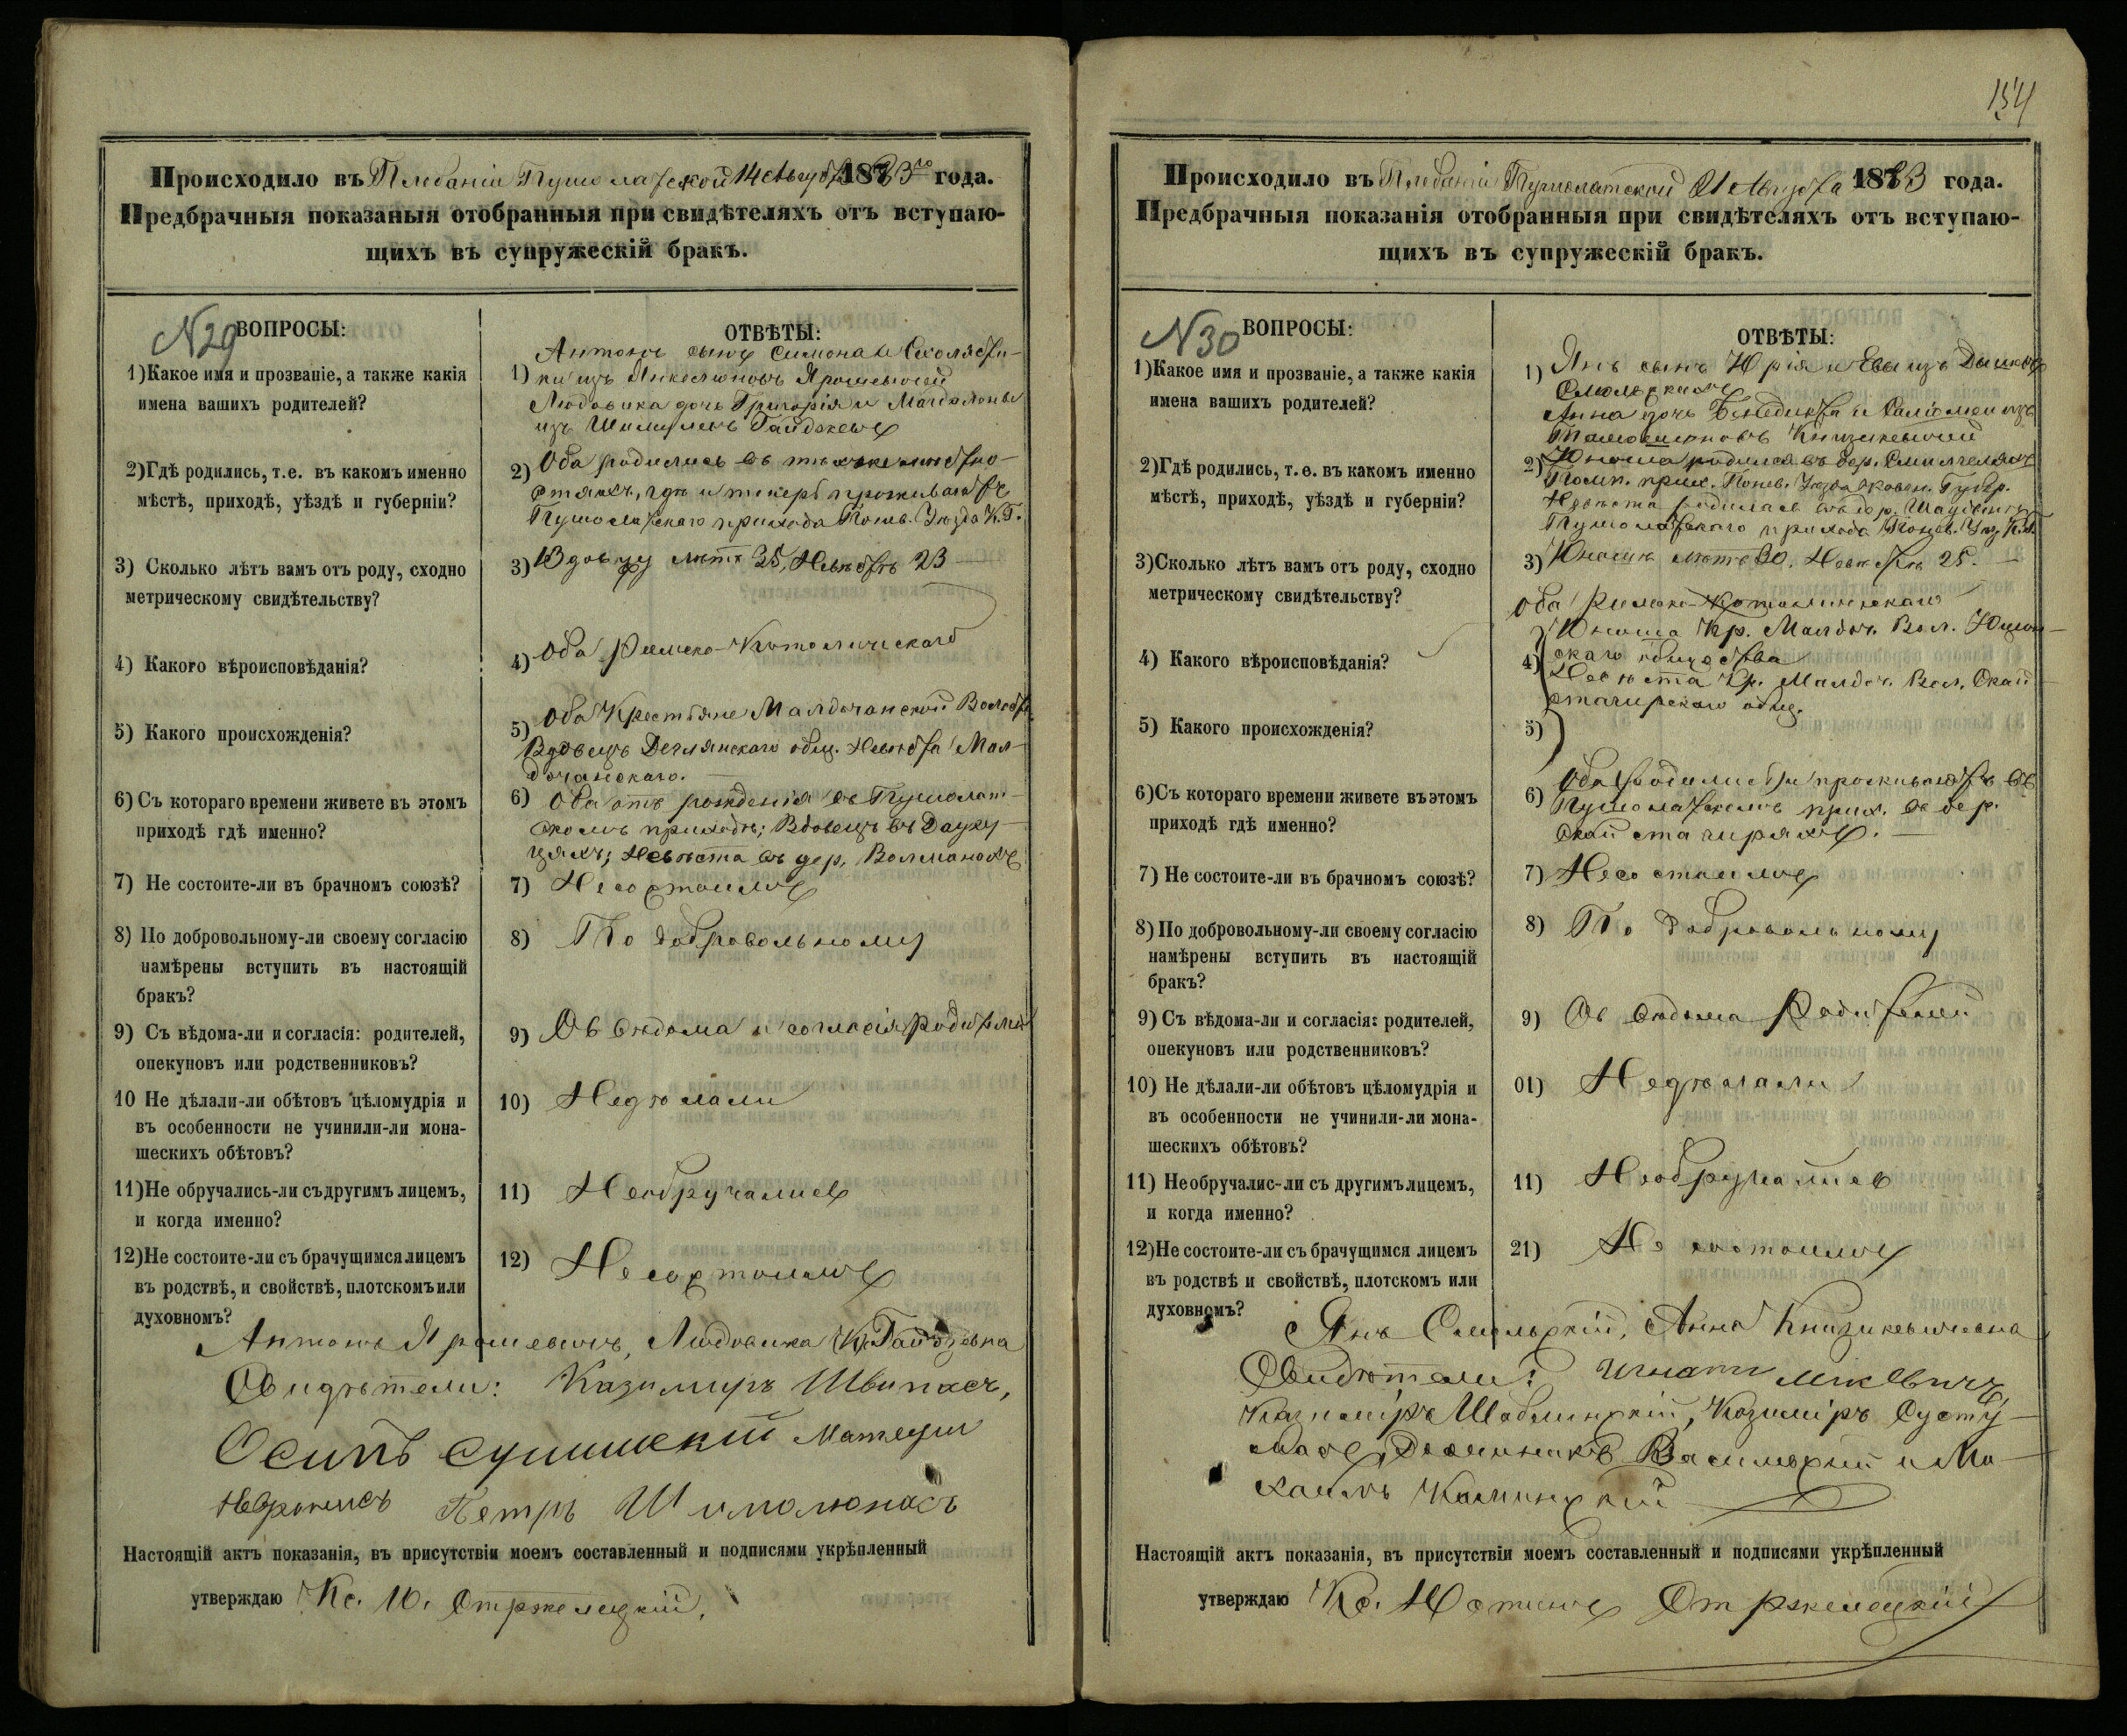 Происходило въ Плебаніи Пушолатской 14 Августа 1883го года.
Предбрачныя показаныя отобранныя при свидѣтеляхъ отъ вступаю-
щихъ въ супружескій бракъ.
N29 ВОПРОСЫ:
1) Какое имя и прозваніе, а также какія
имена вашихъ родителей?
2) Гдѣ родились, т. е. въ какомъ именно
мѣстѣ, приходѣ, уѣздѣ и губерніи?
3) Сколько лѣтъ вамъ отъ роду, сходно
метрическому свидѣтельству?
4) Какого вѣроисповѣданія?
5) Какого происхожденія?
6) Съ котораго времени живете въ этомъ
приходѣ гдѣ именно?
7) Не состоите-ли въ брачномъ союзѣ?
8) По добровольному-ли своему согласію
намѣрены вступить въ настоящій
бракъ?
9) Съ вѣдома-ли и согласія: родителей,
опекуновъ или родственниковъ?
10 Не дѣлали-ли обѣтовъ цѣломудрія и
въ особенности не учинили-ли мона-
шескихъ обѣтовъ?
11) Не обручались-ли съ другимъ лицемъ,
и когда именно?
12) Не состоите-ли съ брачущимся лицемъ
въ родствѣ, и свойствѣ, плотскомъ или
духовномъ?
ОТВѢТЫ:
Антонъ сынъ Симона и Схоласти-
1) ки изъ Ярошевичей
Людовика дочь Григорія и Магдалены
изъ
2) Оба родились въ тѣхже мѣстно-
стяхъ, гдѣ и теперь проживаютъ
Пушолатскаго прихода Понев. Уѣзда К. Г.
3) Вдовцу лѣтъ 35, Невѣстѣ 23
4) Оба Римско-Католическаго
5) Оба Крестьяне Малдочанской Волости
Вдовецъ Деглянскаго общ. Невѣста Мал-
дочанскаго.
6) Оба отъ рожденія въ Пушолат-
скомъ приходѣ; Вдовецъ въ Дауку-
цяхъ; Невѣста въ дер.
7) Несостоимъ
8) По добровольному
9) Съ вѣдома и согласія родителей
10) Недѣлали
11) Необручались
12) Несостоимъ
Антонъ Ярошевичъ, Людовика
Свидѣтели: Казимиръ Швипасъ,
Осипъ Сушинскій Матеуш
Петръ Шимолюнасъ
Настоящій актъ показанія, въ присутствіи моемъ составленный и подписями укрѣпленный
утверждаю Кс. Ю. Стржелецкій.
154
Происходило въ Плебаніи Пушолатской 21 Августа 1883 года.
Предбрачныя показанія отобранныя при свидѣтеляхъ отъ вступаю-
щихъ въ супружескій бракъ.
N30 ВОПРОСЫ:
1) Какое имя и прозваніе, а также какія
имена вашихъ родителей?
2) Гдѣ родились, т. е. въ какомъ именно
мѣстѣ, приходѣ, уѣздѣ и губерніи?
3) Сколько лѣтъ вамъ отъ роду, сходно
метрическому свидѣтельству?
4) Какого вѣроисповѣданія?
5) Какого происхожденія?
6) Съ котораго времени живете въ этомъ
приходѣ гдѣ именно?
7) Не состоите-ли въ брачномъ союзѣ?
8) По добровольному-ли своему согласію
намѣрены вступить въ настоящій
бракъ?
9) Съ вѣдома-ли и согласія: родителей,
опекуновъ или родственниковъ?
10) Не дѣлали-ли обѣтовъ цѣломудрія и
въ особенности не учинили-ли мона-
шескихъ обѣтовъ?
11) Необручалис-ли съ другимъ лицемъ,
и когда именно?
12) Не состоите-ли съ брачущимся лицемъ
въ родствѣ и свойствѣ, плотскомъ или
духовномъ?
ОТВѢТЫ:
1) Янъ сынъ Юрія и Евы изъ
Смольскихъ
Анна дочь Бенедикта и Саломеи изъ
Книзикевичей
2) Юноша родился въ дер.
прих. Понев. Уѣзда Ковен. Губер.
Невѣста родилась въ дер.
Пушолатскаго прихода Понев. Уѣз.
3) Юношѣ лѣтъ 30, Невѣстѣ 25.
Оба Римско-Католическаго
Юноша Кр. Малдоч. Вол.
4) скаго общества
Невѣста Кр. Малдоч. Вол. Скай-
стгирскаго общ.
5)
Оба родились и проживаютъ въ
6) Пушолатскомъ прих. въ дер.
Скайстагиряхъ.
7) Несостоимъ
8) По добровольному
9) Съ вѣдома Родителей
01) Недѣлали
11) Необручались
21) Не состоимъ
Янъ Смольскій, Анна Книзикевичевна
Свидѣтели: Игнатій Мікевичъ,
Казиміръ Шаблинскій, Казиміръ
Доминикъ Васильскій и Ми-
хаилъ Калинскій
Настоящій актъ показанія, въ присутствіи моемъ составленный и подписями укрѣпленный
утверждаю Кс. Юстинъ Стржелецкій